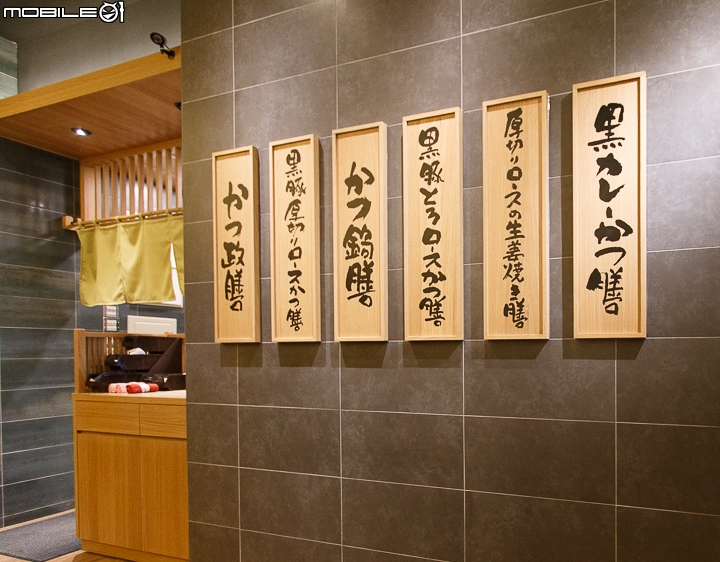 MOBILE01
黒カレーかつ膳
厚切りロースの生姜焼き膳
黒豚とろロースかつ膳
かつ鍋膳
黒豚厚切りロースかつ膳
かつ政膳